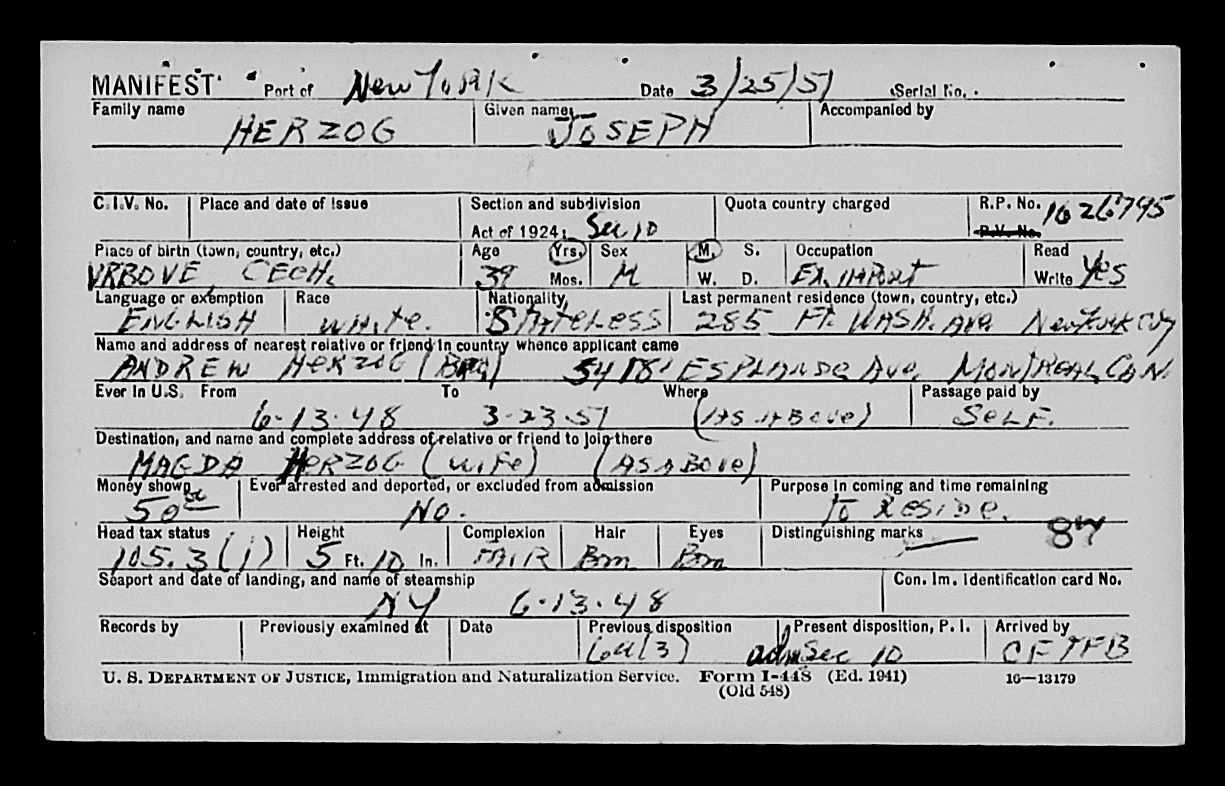 MANIFEST Port of New York Date 3/25/51 Serial No.
Family name Given name Accompanied by
HERZOG JOSEPH
C.I.V. No. Place and date of issue Section and subdivision Quota country charged R.P. No. 1626795
Act of 1924: Sec 10 P.V. No.
Place of birth (town, country, etc.) Age Yrs. Sex M. S. Occupation Read
VRBOVE, CECH. 39 Mos. M W. D. EX. IMPORT Write Yes
Language or exemption Race Nationality Last permanent residence (town, country, etc.)
ENGLISH WHITE. STATELESS 285 FT. WASH. AVE New York City
Name and address of nearest relative or friend in country whence applicant came
ANDREW HERZOG (BRO) 5478 ESPLANDE Ave, MONTREAL, CAN.
Ever in U.S. From To Where Passage paid by
6-13-48 3-23-51 (AS ABOVE) SELF.
Destination, and name and complete address of relative or friend to join there
MAGDA HERZOG (WIFE) (AS ABOVE)
Money shown Ever arrested and deported, or excluded from admission Purpose in coming and time remaining
50 No. To RESIDE.
Head tax status Height Complexion Hair Eyes Distinguishing marks 87
105.3(j) 5 Ft. 10 In. FAIR Brn Brn
Seaport and date of landing, and name of steamship Con. Im. Identification card No.
NY 6-13-48
Records by Previously examined at Date Previous disposition Present disposition, P. I. Arrived by
adm Sec 10
U. S. DEPARTMENT OF JUSTICE, Immigration and Naturalization Service. Form I-448 (Ed. 1941) 16—13179
(Old 548)